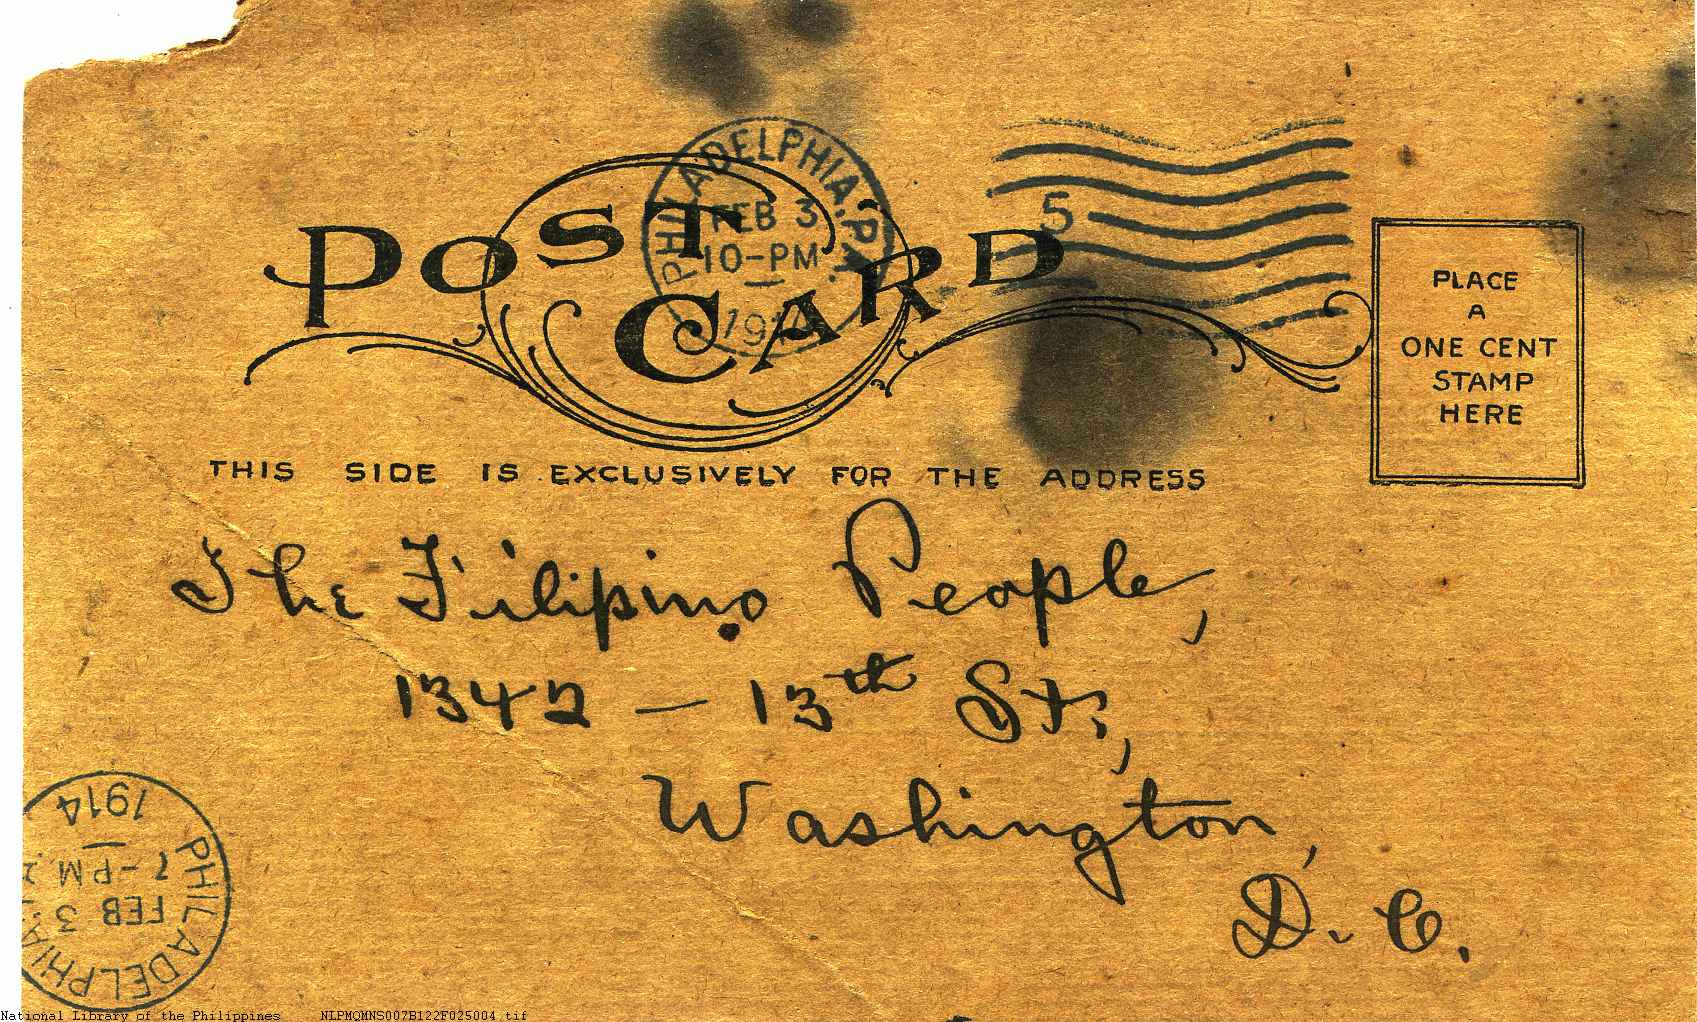 PHILADELPHIA, PA.
FEB 3
10-PM
5
POST CARD
PLACE
A
ONE CENT
STAMP
HERE
THIS SIDE IS EXCLUSIVELY FOR THE ADDRESS
The Filipino People,
1342 – 13th St.,
Washington,
D. C.
PHILADELPHIA
FEB 3
7-PM
1914
National Library of the Philippines NLPMQMNS007B122F025004.tif